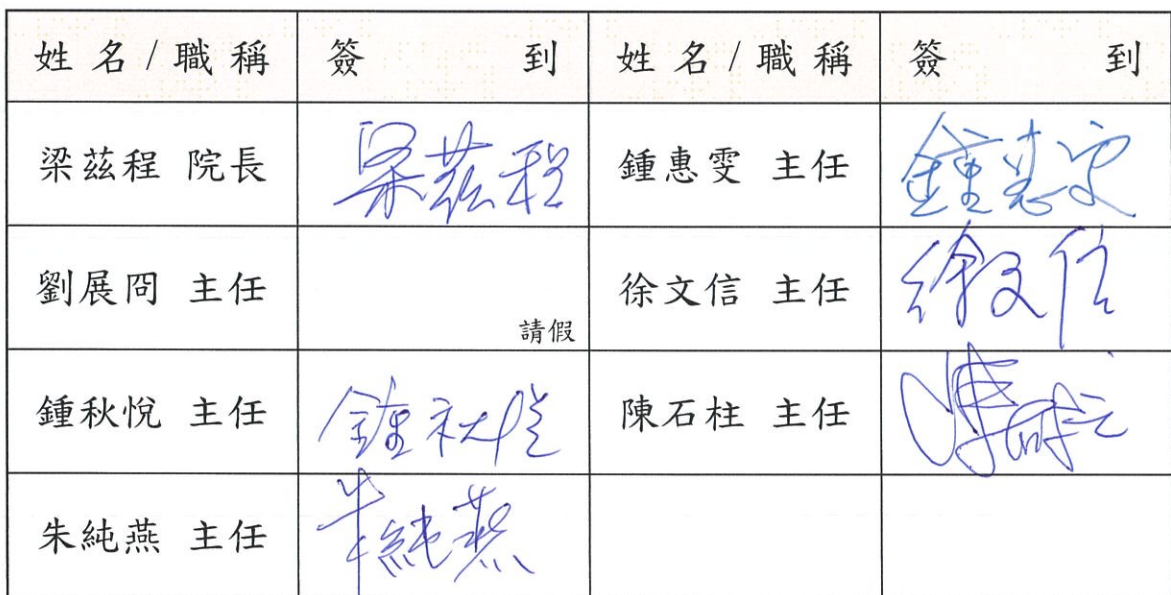 姓名/職稱 簽到 姓名/職稱 簽到
梁茲程 院長 梁茲程 鍾惠雯 主任 鍾惠雯
劉展冏 主任 請假 徐文信 主任 徐文信
鍾秋悅 主任 鍾秋悅 陳石柱 主任 陳石柱
朱純燕 主任 朱純燕